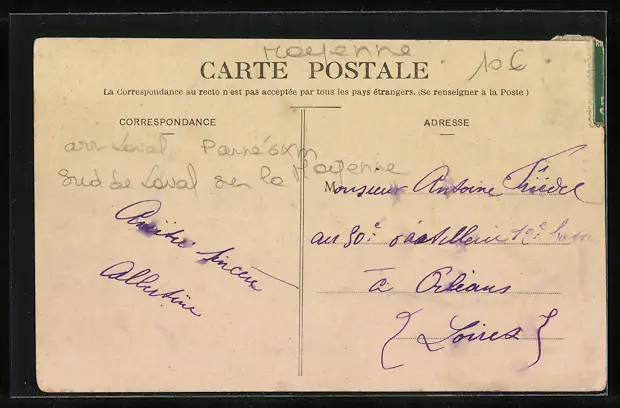 Mayenne
10 €
CARTE POSTALE
La Correspondance au recto n'est pas acceptée par tous les pays étrangers. (Se renseigner à la Poste)
CORRESPONDANCE
ADRESSE
arr Laval Parné 6 km
sud de Laval sur la Mayenne
Amitié sincère
Albertine
Monsieur Antoine
au 30e d'artillerie 12e
à Orléans
(Loiret)